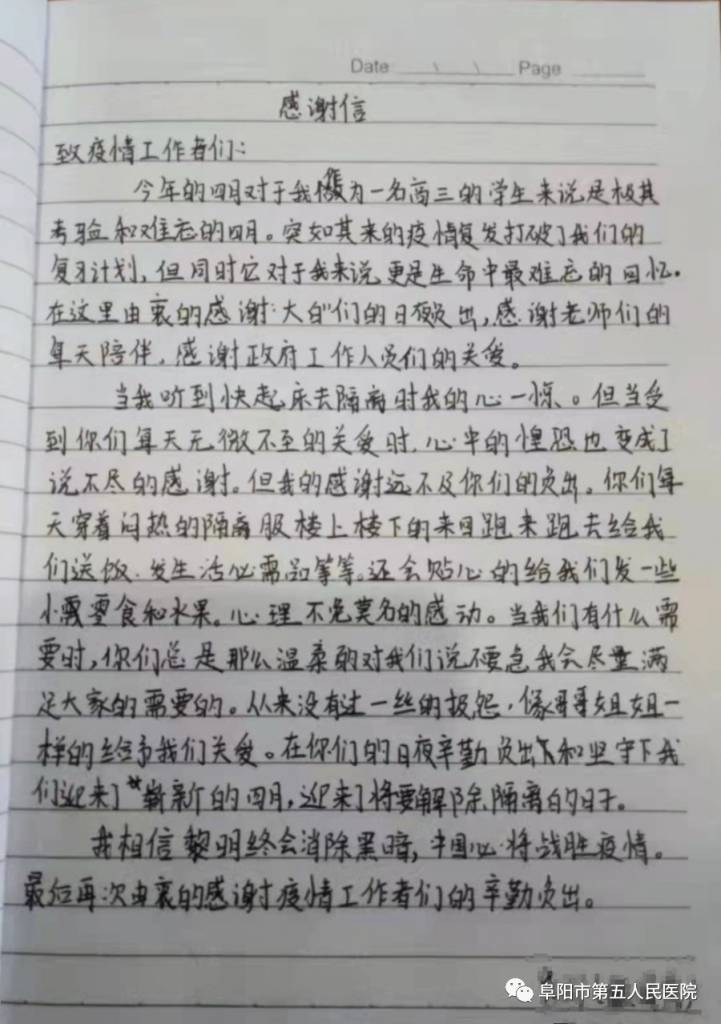 Date Page
感谢信
致疫情工作者们:
今年的四月对于我作为一名高三的学生来说是极其
考验和难忘的四月。突如其来的疫情复发打破了我们的
复习计划,但同时它对于我来说更是生命中最难忘的回忆。
在这里由衷的感谢“大白”们的日夜负出,感谢老师们的
每天陪伴,感谢政府工作人员们的关爱。
当我听到快起床去隔离时我的心一惊。但当受
到你们每天无微不至的关爱时,心中的惶恐也变成了
说不尽的感谢。但我的感谢远不及你们的负出。你们每
天穿着闷热的隔离服楼上楼下的来回跑来跑去给我
们送饭、发生活必需品等等。还会贴心的给我们发一些
小零食和水果。心理不免莫名的感动。当我们有什么需
要时,你们总是那么温柔的对我们说不要急我会尽量满
足大家的需要的。从来没有过一丝的报怨,像哥哥姐姐一
样的给予我们关爱。在你们的日夜辛勤负出和坚守下我
们迎来了崭新的四月,迎来了将要解除隔离的日子。
我相信黎明终会消除黑暗,中国心将战胜疫情。
最后再次由衷的感谢疫情工作者们的辛勤负出。
阜阳市第五人民医院